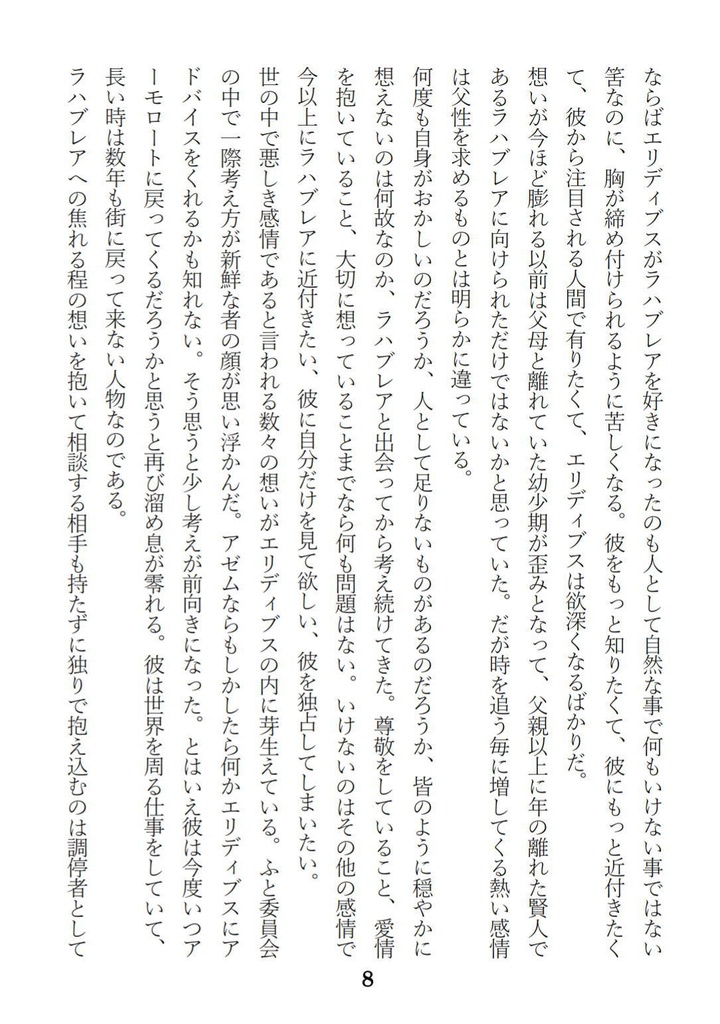 ならばエリディブスがラハブレアを好きになったのも人として自然な事で何もいけない事ではない
筈なのに、胸が締め付けられるように苦しくなる。彼をもっと知りたくて、彼にもっと近付きたく
て、彼から注目される人間で有りたくて、エリディブスは欲深くなるばかりだ。
想いが今ほど膨れる以前は父母と離れていた幼少期が歪みとなって、父親以上に年の離れた賢人で
あるラハブレアに向けられただけではないかと思っていた。だが時を追う毎に増してくる熱い感情
は父性を求めるものとは明らかに違っている。
何度も自身がおかしいのだろうか、人として足りないものがあるのだろうか、皆のように穏やかに
想えないのは何故なのか、ラハブレアと出会ってから考え続けてきた。尊敬をしていること、愛情
を抱いていること、大切に想っていることまでなら何も問題はない。いけないのはその他の感情で
今以上にラハブレアに近付きたい、彼に自分だけを見て欲しい、彼を独占してしまいたい。
世の中で悪しき感情であると言われる数々の想いがエリディブスの内に芽生えている。ふと委員会
の中で一際考え方が新鮮な者の顔が思い浮かんだ。アゼムならもしかしたら何かエリディブスにア
ドバイスをくれるかも知れない。そう思うと少し考えが前向きになった。とはいえ彼は今度いつア
ーモロートに戻ってくるだろうかと思うと再び溜め息が零れる。彼は世界を周る仕事をしていて、
長い時は数年も街に戻って来ない人物なのである。
ラハブレアへの焦れる程の想いを抱いて相談する相手も持たずに独りで抱え込むのは調停者として
8